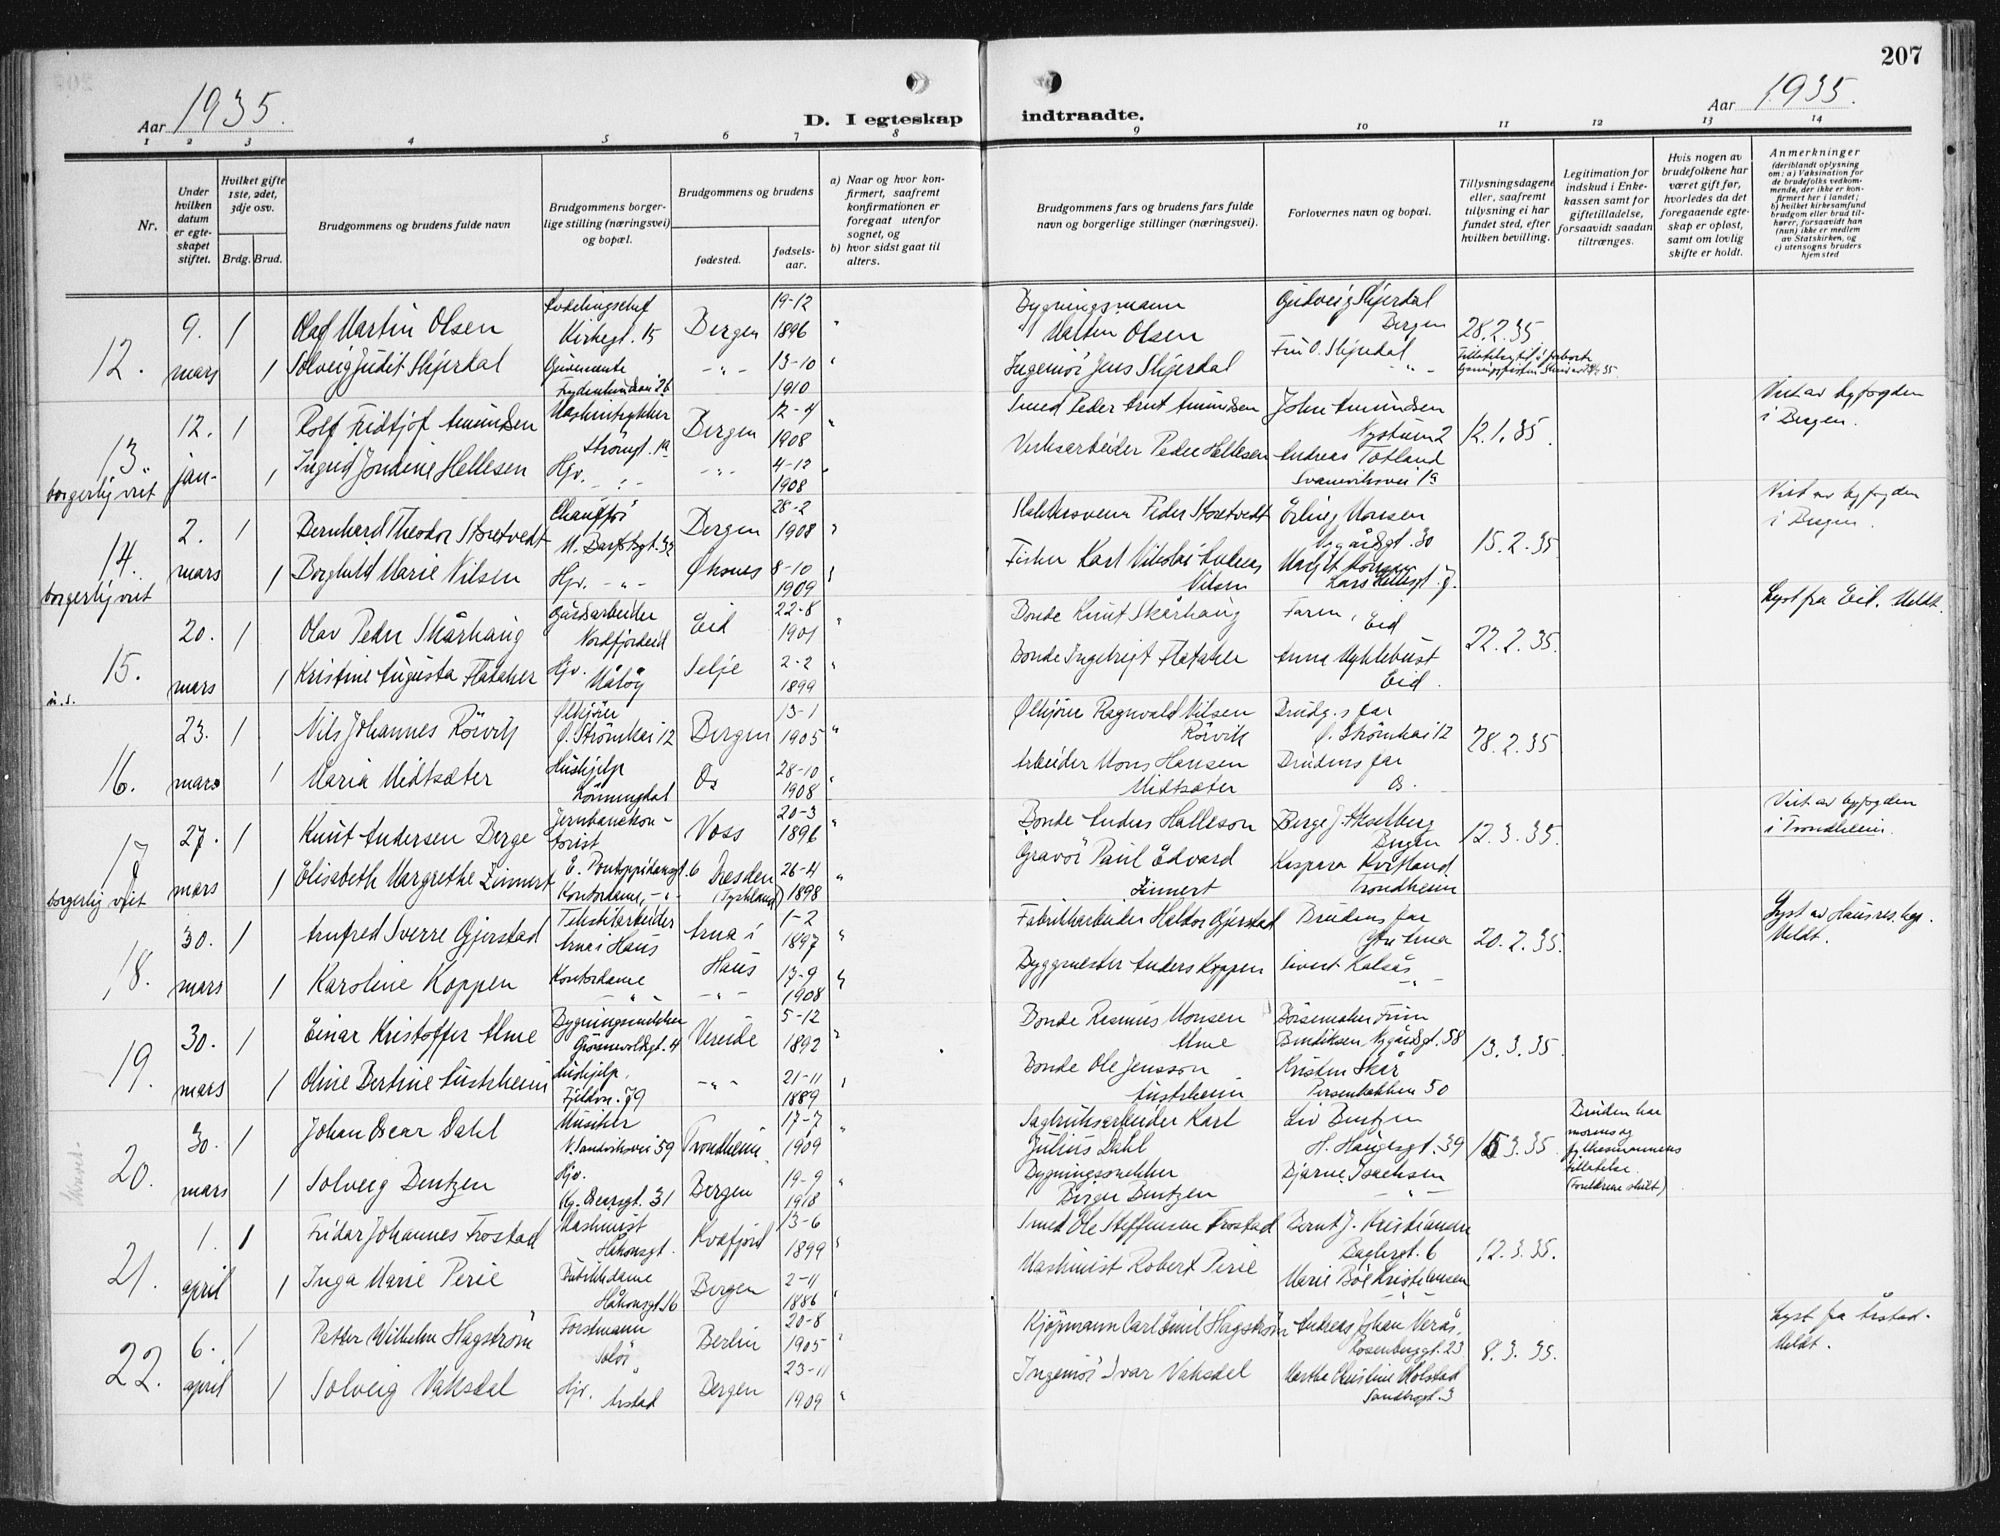 207
Aar 1935.
D. I egteskap indtraadte.
Aar 1935.
1 2 3 4 5 6 7 8 9 10 11 12 13 14
Nr.
Under hvilken datum er egteskapet stiftet.
Hvilket gifte 1ste, 2det, 3dje osv.
Brdg. Brud.
Brudgommens og brudens fulde navn
Brudgommens borgerlige stilling (næringsvei) og bopæl.
Brudgommens og brudens
fødested.
fødselsaar.
a) Naar og hvor konfirmert, saafremt konfirmationen er foregaat utenfor sognet, og
b) hvor sidst gaat til alters.
Brudgommens fars og brudens fars fulde navn og borgerlige stillinger (næringsvei).
Forlovernes navn og bopæl.
Tillysningsdagene eller, saafremt tillysning ei har fundet sted, efter hvilken bevilling.
Legitimation for indskud i Enkekassen samt for giftetilladelse, forsaavidt saadan tiltrænges.
Hvis nogen av brudefolkene har været gift før, hvorledes da det foregaaende egteskap er opløst, samt om lovlig skifte er holdt.
Anmerkninger
(deriblandt oplysning om: a) Vaksination for de brudefolks vedkommende, der ikke er konfirmert her i landet;
b) hvilket kirkesamfund brudgom eller brud tilhører, forsaavidt han (hun) ikke er medlem av Statskirken, og
c) utensogns bruders hjemsted
12. 9. mars
1 Olaf Martin Olsen Avdelingschef Kirkegt. 15 Bergen 19-12 1896 Bygningsmann Martin Olsen Gudveig Skjerdal Bergen 28.2.35.
1 Solveig Judit Skjerdal Guvernante -"- 13-10 1910 Ingeniör Jens Skjerdal Fru O. Skjerdal -"-
13. borgerlig viet 12. jan-
1 Rolf Fridtjof Amundsen Maskintrykker Strömgt. 1a Bergen 12-4 1908 Smed Peder Arnt Amundsen John Amundsen Nystuen 2 12.1.35. Viet av byfogden i Bergen.
1 Ingrid Jondine Hellesen Hjv. -"- -"- 4-12 1908 Verksarbeider Peder Hellesen Andreas Totland Svaneviksvei 1a
14. borgerlig viet 2. mars
1 Bernhard Theodor Storetvedt Chaufför Bergen 28-2 1908 Peder Storetvedt Erling Monsen Nygårdsgt. 30 15.2.35 Viet av byfogden i Bergen.
1 Borghild Marie Nilsen Hjv. -"- Øksnes 8-10 1909 Fisker Karl Nikolai Andreas Nilsen
15. u.s. 20. mars
1 Olav Peder Skårhaug Gårdsarbeider Nordfjordeid Eid 22-8 1901 Bonde Knut Skårhaug Faren, Eid 22.2.35. Lyst fra Eid. Meldt.
1 Kristine Augusta Flataker Hjv. Måløy Selje 2-2 1899 Bonde Ingebrigt Flataker Anna Myklebust Eid.
16. 23. mars
1 Nils Johannes Rörvik Ølkjörer Ø. Strömkai 12 Bergen 13-1 1905 Ølkjörer Ragnvald Nilsen Rörvik Brudg.s far Ø. Strömkai 12 28.2.35
1 Maria Midtsæter Hushjelp Lönningdal Os 28-10 1908 Arbeider Mons Hansen Midtsæter Brudens far Os.
17. borgerlig viet 27. mars
1 Knut Andersen Berge Jernbanekontorist Voss 20-3 1896 Bonde Anders Halleson Berge J. Bergen 12.3.35. Viet av byfogden i Trondheim.
1 Elisabeth Margrethe Zinnert E. Pontoppidansgt. 6 Kontordame, -"- Dresden (Tyskland) 26-4 1898 Gravör Paul Edvard Zinnert Kaspara Kvitland Trondheim
18. 30. mars
1 Arnfred Sverre Gjerstad Tekstilarbeider Arna i Haus Arna i Haus 1-2 1897 Fabrikkarbeider Haldor Gjerstad Brudens far Ytre Arna 20.2.35. Lyst av Haus res.kap. Meldt.
1 Karoline Koppen Kontordame -"- -"- 13-9 1908 Byggmester Anders Koppen Sivert Kalsås -"-
19. 30. mars
1 Einar Kristoffer Alme Bygningssnekker Vereide 5-12 1892 Bonde Rasmus Monsen Alme Nygårdsgt. 58 13.3.35.
1 Oline Bertine Austrheim Hushjelp, Fjeldvn. 79 -"- 21-11 1889 Bonde Ole Jensson Austrheim Kristen Skår Persenbakken 50
20. 30. mars
1 Johan Oscar Dahl Musiker N. Sandviksvei 59 Trondheim 17-7 1909 Sagbruksarbeider Karl Julius Dahl Liv Bentzen H. Haugesgt. 39 15.3.35. Bruden har morens og fylkesmannens tillatelse. (Foreldrene skilt)
1 Solveig Bentzen Hjv. Kg. Oscarsgt. 31 Bergen 19-9 1918 Bygningssnekker Birger Bentzen Bjarne Isachsen -"-
21. 1. april
1 Fridar Johannes Frostad Maskinist Håkonsgt. Kvæfjord 13-6 1899 Smed Ole Steffensen Frostad Bernt J. Kristiansen Baglergt. 6 12.3.35.
1 Inga Marie Perie Butikkdame Håkonsgt. 16 Bergen 2-11 1886 Maskinist Robert Perie Marie Böe Kristiansen -"-
22. 6. april
1 Petter Wilhelm Hagström Forstmann Solör Berlin 20-8 1905 Kjöpmann Carl Emil Hagström Andreas Johan Verås, Rosenberggt. 23 8.3.35. Lyst fra Årstad. Meldt.
1 Solveig Vaksdal Hjv. Årstad Bergen 23-11 1909 Ingeniör Ivar Vaksdal Martha Christine Molstad